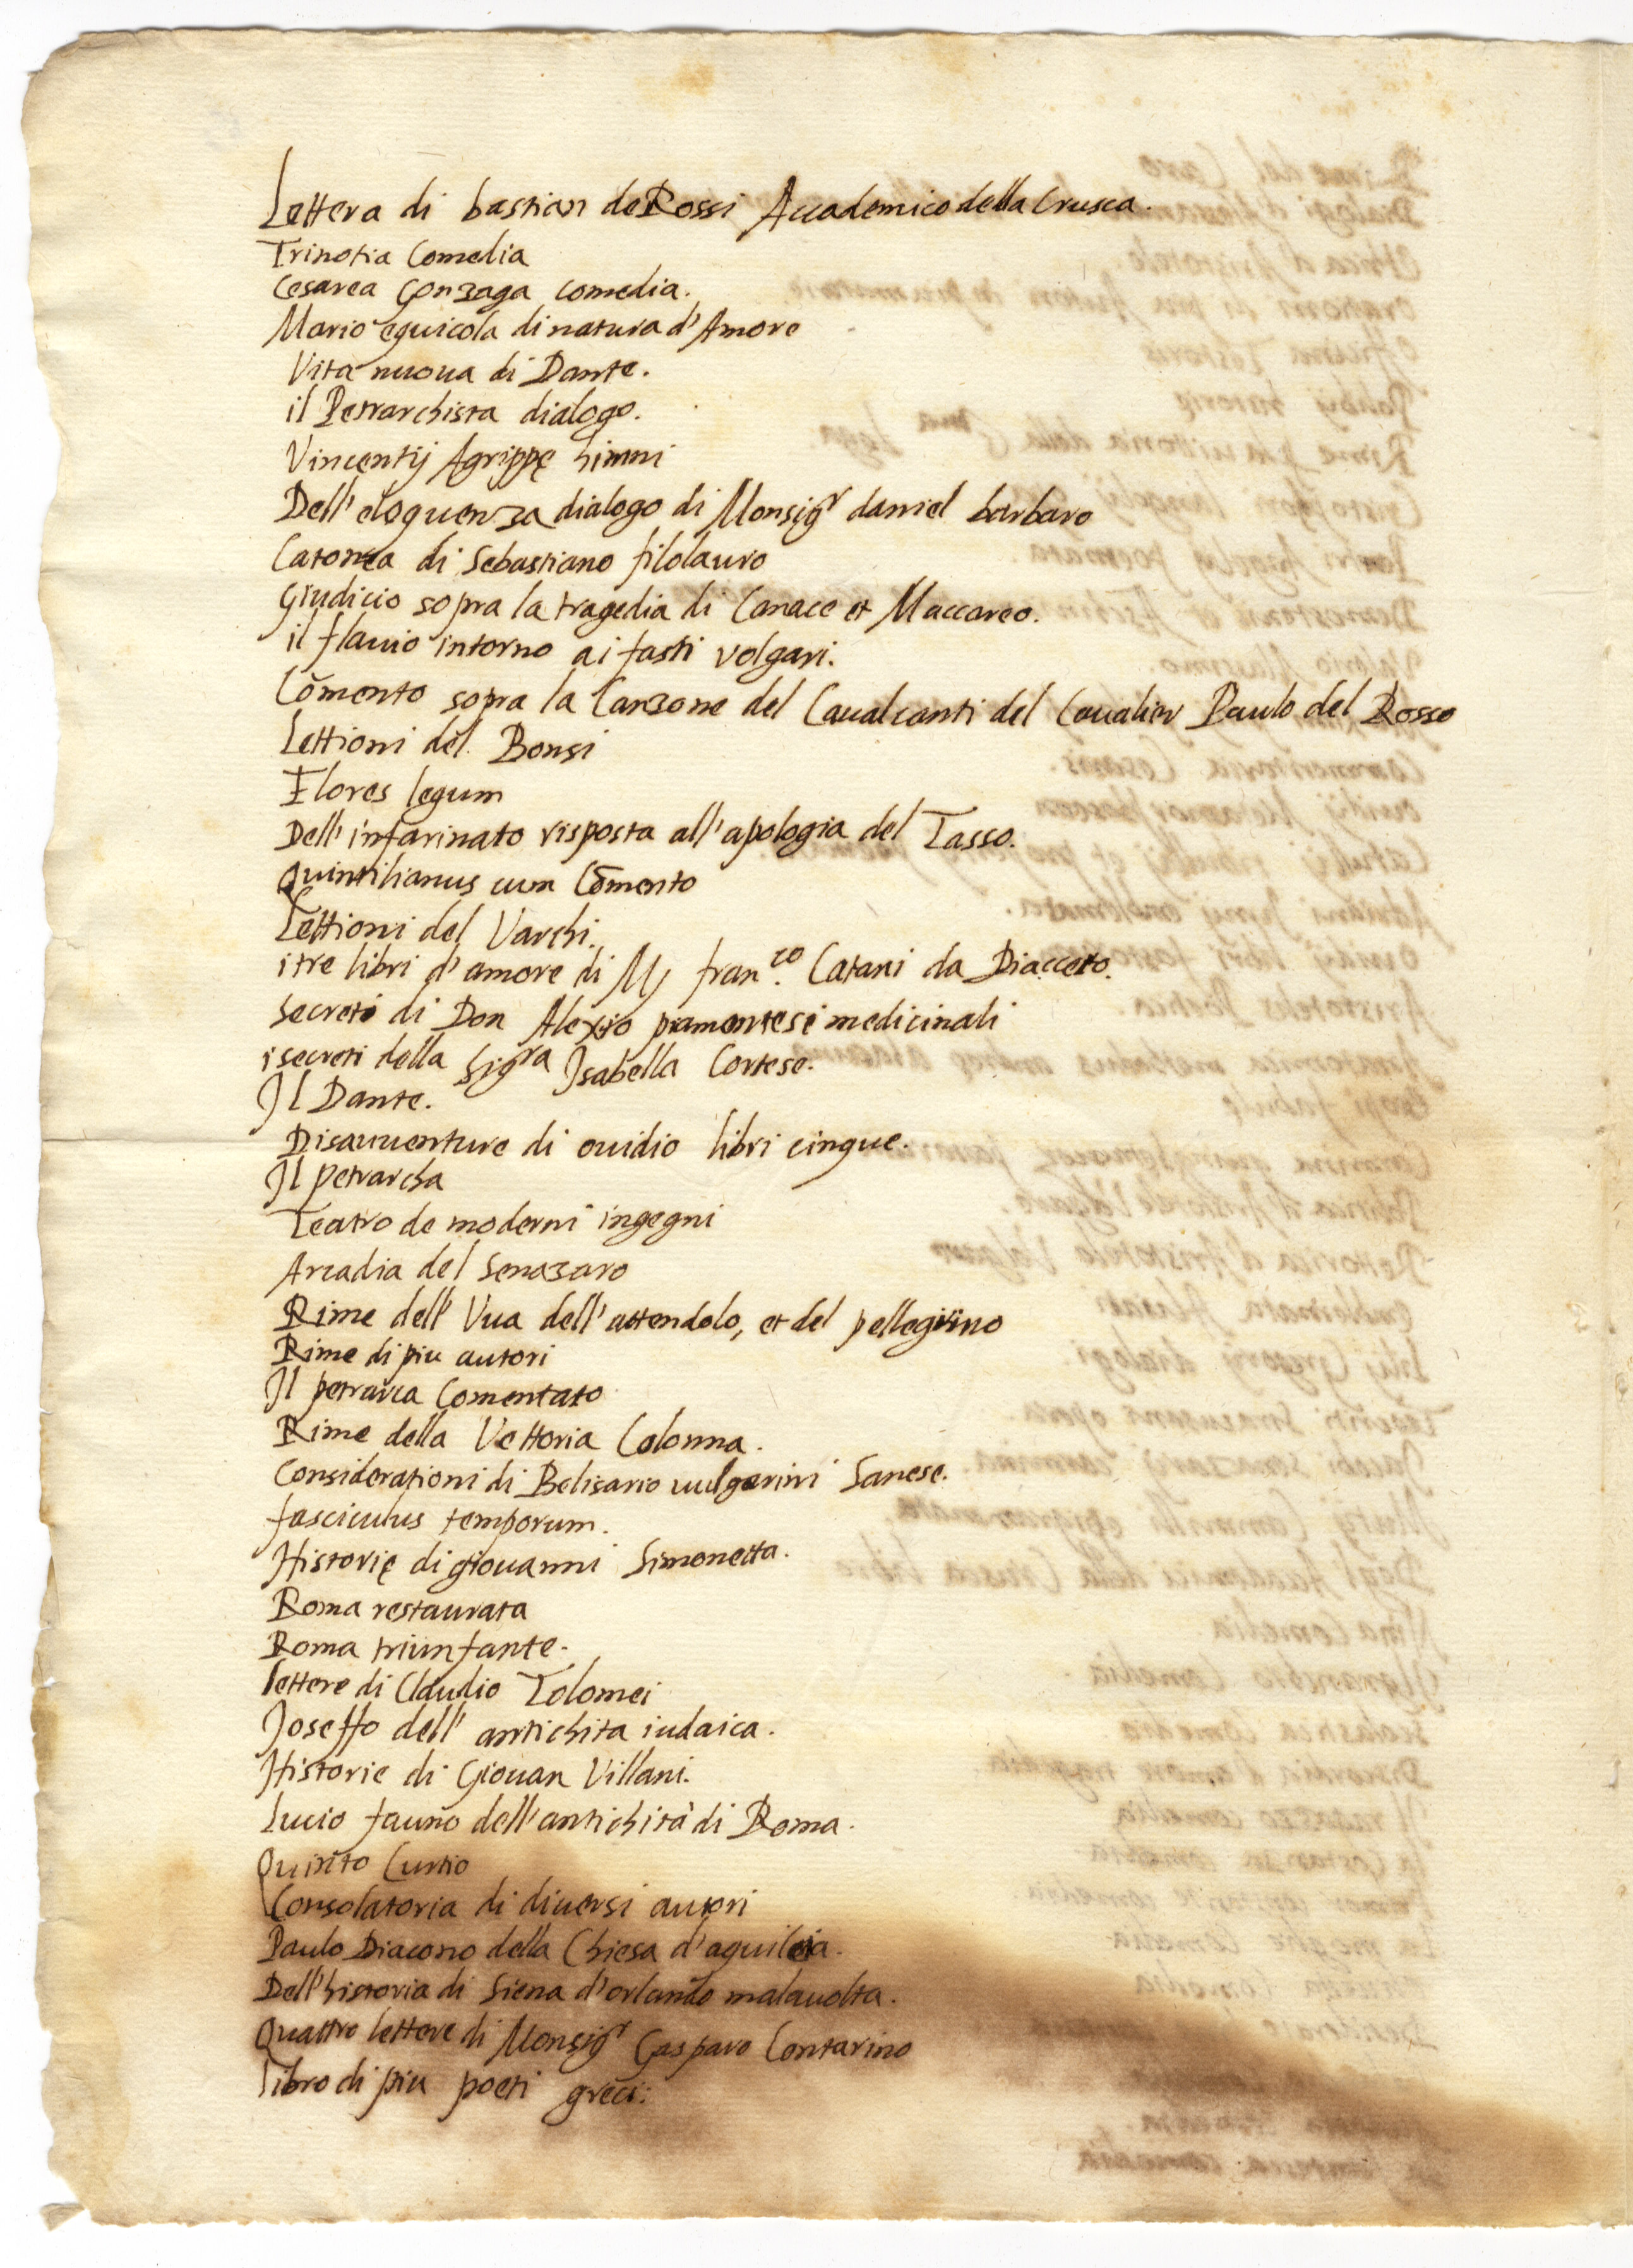 Lettera di bastian de Rossi Accademico della Crusca.
Trinotia Comedia
Cesarea Gonzaga comedia.
Mario equicola di natura d'Amore
Vita nuoua di Dante.
il Petrarchista dialogo.
Vincentij Agrippę himni
Dell'eloquenza dialogo di Monsigr daniel barbaro
Catonea di Sebastiano filolauro
Giudicio sopra la tragedia di Canace et Maccareo.
il flauio intorno ai fasti volgari.
Cōmento sopra la Canzone del Caualcanti del Caualier Paulo del Rosso
Lettioni del Bonsi
Flores legum
Dell'infarinato risposta all'apologia del Tasso.
Quintilianus cum Cōmento
Lettioni del Varchi.
i tre libri d'amore di M. franco. Catani da Diacceto.
Secreti di Don Alexio piamontese medicinali
i secreti della Sigra Isabella Cortese.
Il Dante.
Disauuenture di ouidio libri cinque.
Il petrarcha
Teatro de moderni ingegni
Arcadia del Senazaro
Rime dell'Vua dell'attendolo, et del pellegrino
Rime di piu autori
Il petrarca Comentato
Rime della Vettoria Colonna.
Considerationi di Belisario uulgarini Sanese.
fasciculus temporum.
Historię di giouanni Simonetta.
Roma restaurata
Roma triunfante.
lettere di Claudio Tolomei
Joseffo dell'antichita iudaica.
Historie di Giouan Villani.
Lucio fauno dell'antichità di Roma.
Quinto Curtio
Consolatoria di diuersi autori
Paulo Diacono della Chiesa d'aquileia.
Dell'historia di Siena d'orlando malauolta.
Quattro lettere di Monsigr Gasparo Contarino
libro di piu poeti greci: